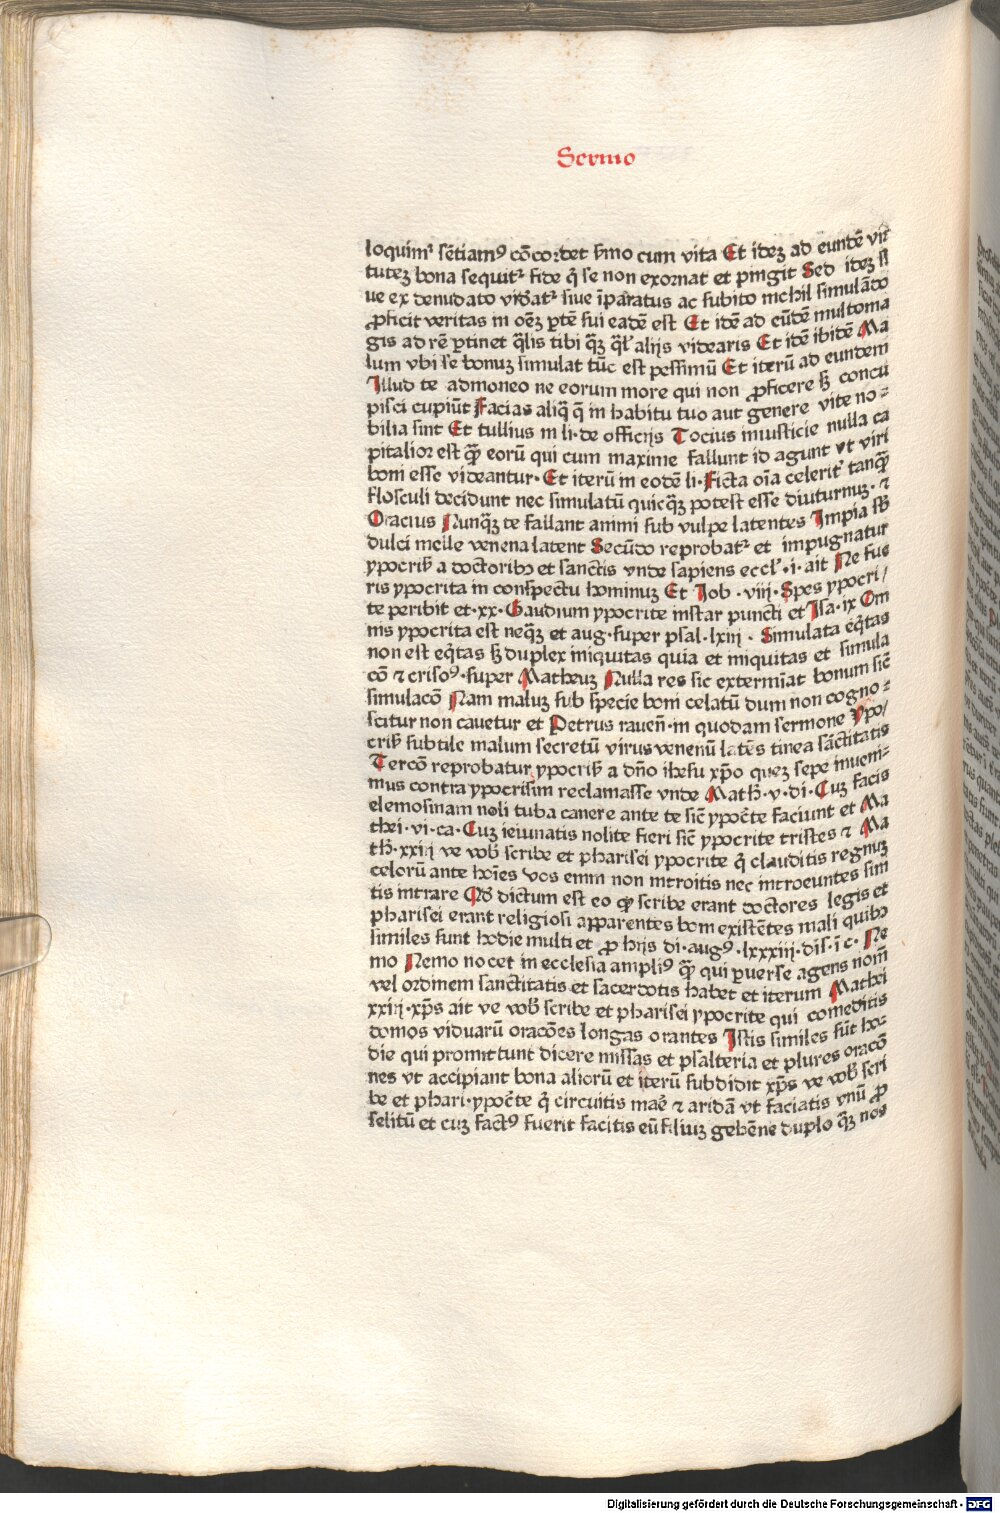 Sermo
loquimʳ sētiamꝰ cōcordet ẜmo cum vita Et idez ad eundē vir
tutez bona sequitʳ fide q̄ se non exornat et pingit Sed idez si
ue ex denudato vid̄atʳ siue īparatus ac subito nichil simulādo
ꝓficit veritas in oēz ꝑtē sui eadē est Et idē ad eūdē multoma
gis ad rē ꝑtinet q̄lis tibi q̄ꝫ q̄lˀ alijs videaris Et idē ibidē Ma
lum vbi se bonuꝫ simulat tūc est pessimū Et iterū ad eundem
Illud te admoneo ne eorum more qui non ꝓficere sꝫ concu
pisci cupiūt Facias aliq̄ q̄ in habitu tuo aut genere vite no-
bilia sint Et tullius in li·de officijs Tocius iniusticie nulla ca
pitalior est qͣꝫ eorū qui cum maxime fallunt id agunt vt viri
boni esse videantur· Et iterū in eodē li·Ficta oīa celeritˀ tanqͣꝫ
flosculi decidunt nec simulatū quicqͣꝫ potest esse diuturnuꝫ· ⁊
Oracius Nunqͣꝫ te fallant animi sub vulpe latentes Impia sꝫ
dulci melle venena latent Secūdo reprobatʳ et impugnatur
ypocrisˀ a doctoribꝰ et sanctis vnde sapiens ecclˀ·i·ait Ne fue
ris ypocrita in conspectu hominuꝫ Et Iob ·viij·Spes ypocri/
te peribit et·xx·Gaudium ypocrite instar puncti et Isa·ix Om
nis ypocrita est neqͣꝫ et aug·super psal·lxiij· Simulata eq̄tas
non est eq̄tas sꝫ duplex iniquitas quia et iniquitas et simula
cō ⁊ crisoꝰ·super Matheuꝫ Nulla res sic extermīat bonum sic̄
simulacō Nam maluꝫ sub specie boni celatū dum non cogno-
scitur non cauetur et Petrus rauen̄·in quodam sermone Ypo/
crisˀ subtile malum secretū virus venenū latēs tinea sāctitatis
Tercō reprobatur ypocrisˀ a dn̄o ihesu xp̄o quez sepe inueni-
mus contra ypocrisim reclamasse vnde Math̄·v·di·Cuꝫ facis
elemosinam noli tuba canere ante te sic̄ ypoc̄te faciunt et Ma
thei·vi·ca·Cuꝫ ieiunatis nolite fieri sic̄ ypocrite tristes ⁊ Ma
th̄·xxiij ve vobˀ scribe et pharisei ypocrite q̄ clauditis regnuꝫ
celorū ante hoīes vos enim non introitis nec introeuntes sini
tis intrare Qd̄ dictum est eo ꝙ scribe erant doctores legis et
pharisei erant religiosi apparentes boni existētes mali quibꝰ
similes sunt hodie multi et ꝓ hijs di·augꝰ·lxxxiij·dis·ī c· Ne
mo Nemo nocet in ecclesia ampliꝰ qͣꝫ qui ꝑuerse agens nom̄
vel ordinem sanctitatis et sacerdotis habet et iterum Mathei
xxiij·xp̄s ait ve vobˀ scribe et pharisei ypocrite qui comeditis
domos viduarū oracōes longas orantes Istis similes sūt ho-
die qui promittunt dicere missas et psalteria et plures oracō
nes vt accipiant bona aliorū et iterū subdidit xp̄s ve vobˀ scri
be et phari·ypoc̄te q̄ circuitis marˀ ⁊ aridā vt faciatis vnū ꝓ
selitū et cuꝫ factꝰ fuerit facitis eū filiuꝫ gehēne duplo qͣꝫ nos
Digitalisierung gefördert durch die Deutsche Forschungsgemeinschaft - DFG